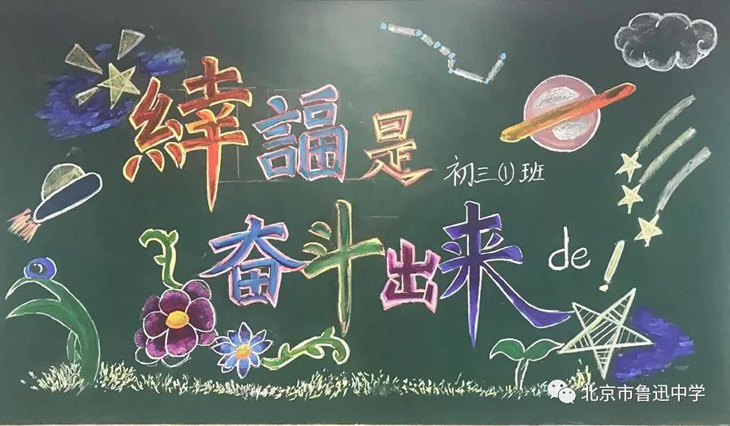 緈諨是
初三(1)班
奋斗出来de!
北京市鲁迅中学